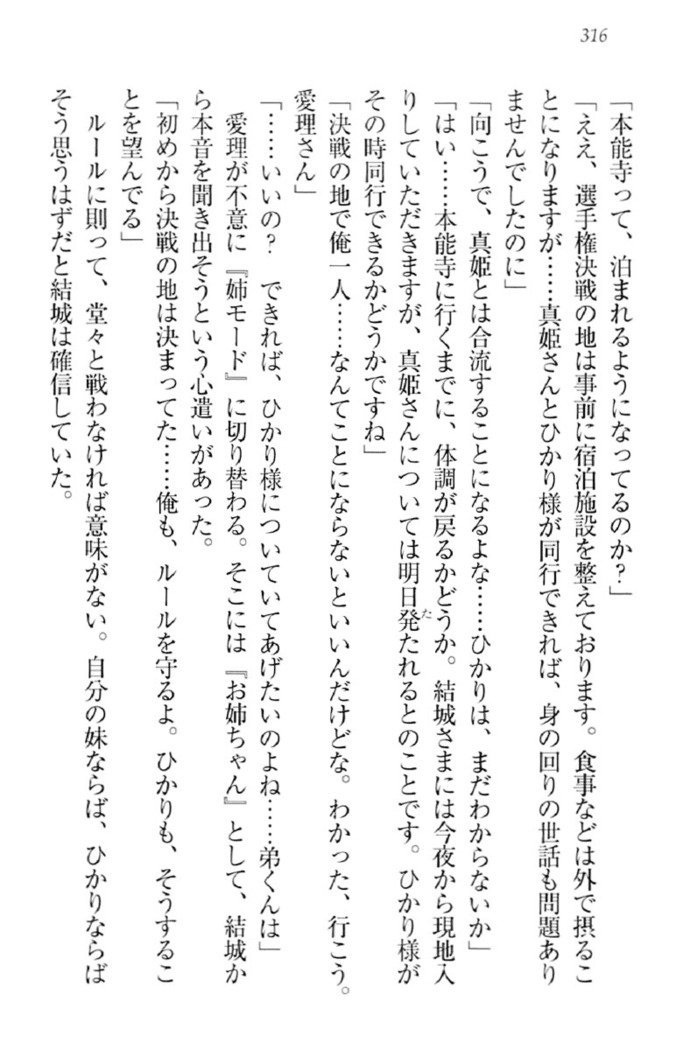 316
「本能寺って、泊まれるようになってるのか？」
「ええ、選手権決戦の地は事前に宿泊施設を整えております。食事などは外で摂るこ
とになりますが……真姫さんとひかり様が同行できれば、身の回りの世話も問題あり
ませんでしたのに」
「向こうで、真姫とは合流することになるよな……ひかりは、まだわからないか」
「はい……本能寺に行くまでに、体調が戻るかどうか。結城さまには今夜から現地入
りしていただきますが、真姫さんについては明日発たれるとのことです。ひかり様が
その時同行できるかどうかですね」
「決戦の地で俺一人……なんてことにならないといいんだけどな。わかった、行こう。
愛理さん」
「……いいの？　できれば、ひかり様についていてあげたいのよね……弟くんは」
　愛理が不意に『姉モード』に切り替わる。そこには『お姉ちゃん』として、結城か
ら本音を聞き出そうという心遣いがあった。
「初めから決戦の地は決まってた……俺も、ルールを守るよ。ひかりも、そうするこ
とを望んでる」
　ルールに則って、堂々と戦わなければ意味がない。自分の妹ならば、ひかりならば
そう思うはずだと結城は確信していた。